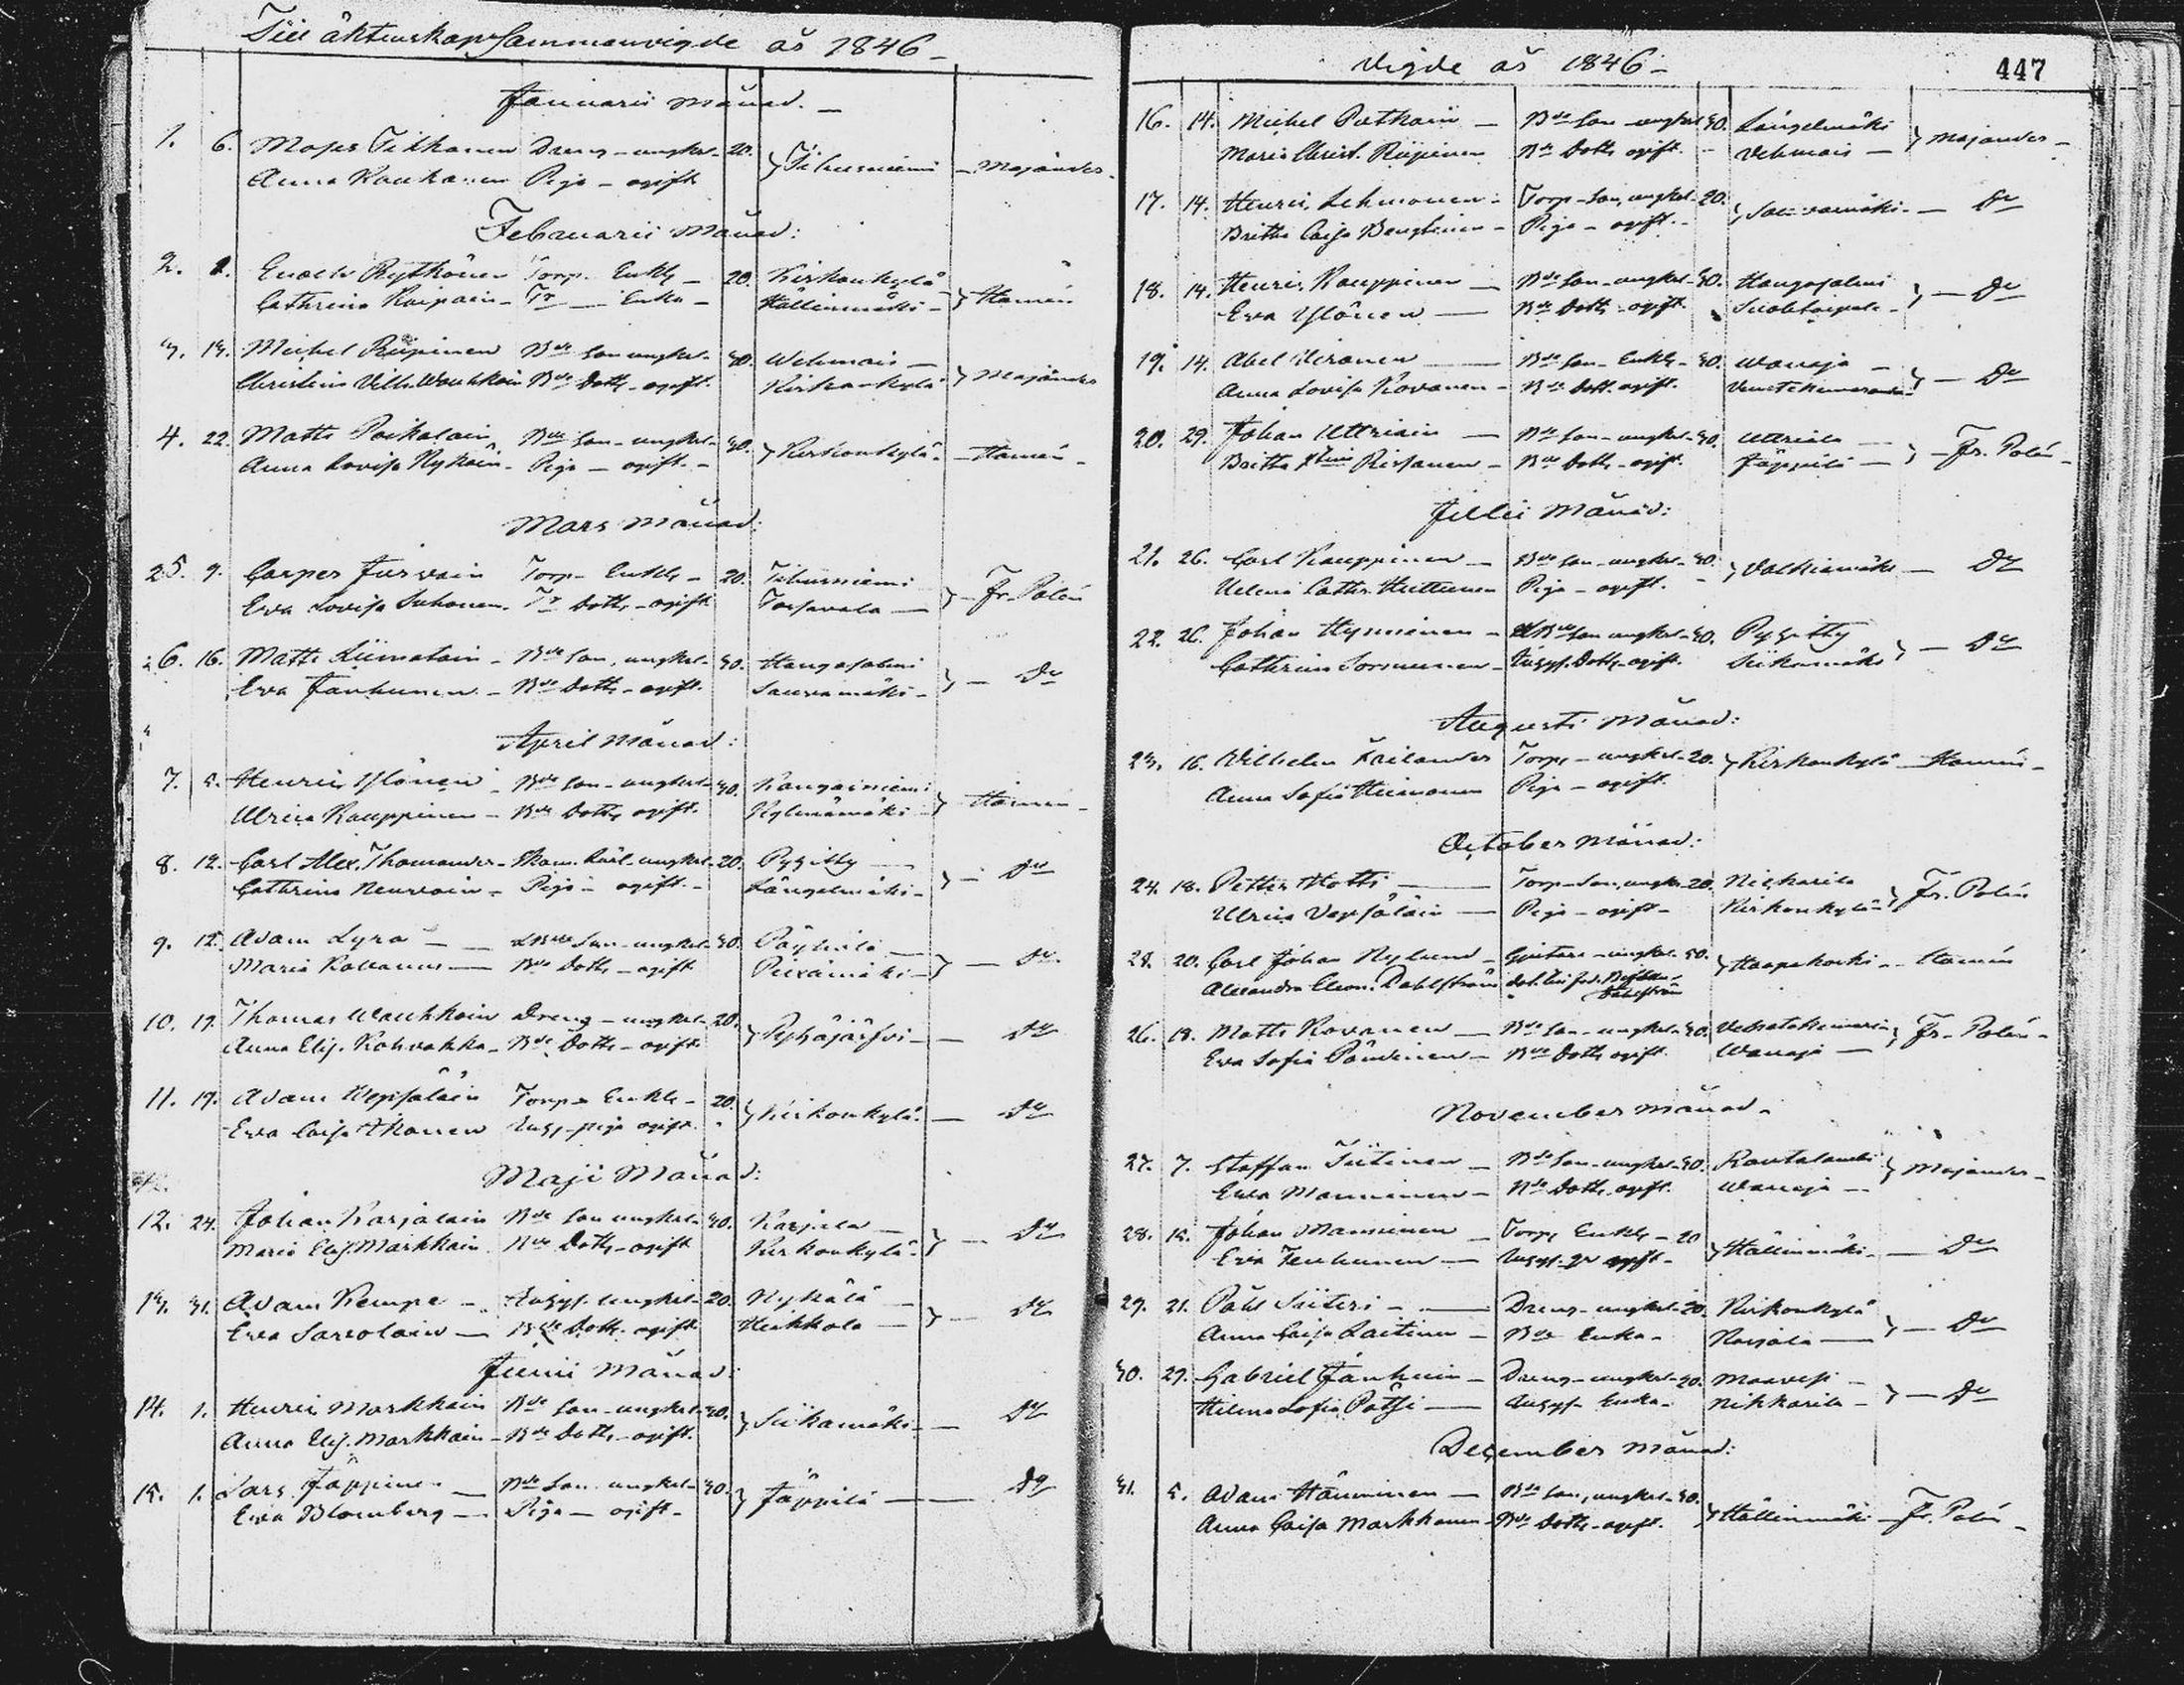 Till äktenskap Sammanvigde år 1846
Januarii månad.
1. 6. Moses Tikkanen Dreng - ungkl. 20. Tihusniemi Majander
Anna Kauhanen Piga - ogift
Februarii månad:
2. Enoch Rytkönen Torp. Enkl. 20. Kirkonkylä Hamén
Cathrina Enka Hällinmäki
3. Michel Riipinen Bde Son ungkl. 30. Wehmais Majander
Christina Vilh. Wauhkoin Bde Dottr ogift. Kirkonkylä
4. 22. Matts Poikalain Bde Son - ungkl. 30. Kirkonkylä Hamén
Anna Lovisa Nykäin Piga - ogift
Mars månad:
5. 9. Casper Jurvain Torp. Enkl. 20. Tihusniemi Fr. Polén
Eva Lovisa Suhonen Tr Dottr - ogift
6. 16. Matts Liimatain Bde Son, ungkl. 30. Hangasalmi Do
Eva Janhunen Bde Dottr - ogift. Sauvamäki
April månad:
7. 5. Henric Ylönen Bde Son - ungkl. 30. Kangainiemi Hamén
Ulrica Kauppinen Bde Dottr ogift. Kylmämäki
8. 12. Carl Alex. Thomander ungkl. 20. Pyhitty Do
Cathrina Neuvoin Piga - ogift. Längelmäki
9. 12. Adam Lyra Son - ungkl. 30. Do
Maria Kovanen Bde Dottr - ogift Piexämäki
10. 19. Thomas Wauhkoin Dreng - ungkl. 20. Pyhäjärfvi Do
Anna Elis. Kohvakka Bde Dottr - ogift
11. 19. Adam Wepsäläin Torp. Enkl. 20. Kirkonkylä Do
Eva Caisa Ikonen piga ogift.
Maji Månad:
12. 24. Johan Karjalain Bde Son ungkl. 30. Karjala Do
Maria Elis. Markkain Bde Dottr - ogift Kirkonkylä
13. 31. Adam Kempe Ingss. ungkl. 20. Nykälä Do
Eva Sarvolain Bde Dottr - ogift Heikkola
Junii månad:
14. 1. Henric Markkain Bde Son - ungkl. 30. Siikamäki Do
Anna Elis. Markkain Bde Dottr - ogift.
15. 1. Lars Jäppinen Bde Son ungkl. 30. Jäppilä Do
Eva Blomberg Piga - ogift
Vigde år 1846 447
16. 14. Michel Putkoin Bde Son - ungkl 30. Längelmäki Majander
Maria Christ. Riipinen Bde Dottr ogift. Vehmais
17. 14. Henric Lehmonen Torp. Son, ungkl. 20. Sauvamäki Do
Britha Caisa Piga - ogift.
18. 14. Henric Kauppinen Bde Son - ungkl. 30. Hangasalmi Do
Eva Ylönen Bde Dottr - ogift. Suolitaipale
19. 14. Abel Bde Son - Enkl. 30. Wanaja Do
Anna Lovisa Kovanen Bde Dott. ogift.
20. 29. Johan Uttriain Bde Son - ungkl. 30. Uttriala Fr. Polén
Britha Rissanen Bde Dottr - ogift. Jäppilä
Julii Månad:
21. 26. Carl Kauppinen Bde Son - ungkl. 30. Valkiamäki Do
Helena Cathr. Huttunen Piga - ogift.
22. 26. Johan Hynninen Son ungkl. 30. Pyhitty Do
Cathrina Sormunen Ingss. Dottr ogift. Siikamäki
Augusti Månad:
23. 16. Vilhelm Failander Torp. - ungkl. 20. Kirkonkylä Hamén
Anna Sofia Piga - ogift.
October Månad:
24. 18. Petter Hotti Torp. Son, ungkl. 20. Nickarila Fr. Polén
Ulrica Vepsäläin Piga - ogift Kirkonkylä
25. 20. Carl Johan Nylund ungkl. 50. Haapakoski Hamén
Alexandra Eleon. Dahlström Dahlström
26. 18. Matts Kovanen Bde Son - ungkl. 30. Fr. Polén
Eva Sofia Bde Dottr ogift. Wanaja
November månad.
27. 7. Staffan Tiitinen Bde Son - ungkl. 30. Rautalambi Majander
Eva Manninen Bde Dottr ogift. Wanaja
28. 15. Johan Manninen Torp. Enkl. 20 Hällinmäki Do
Eva Tenhunen ogift
29. 21. Påhl Siiteri Dreng - ungkl. 20. Kirkonkylä Do
Anna Caisa Laitinen Bde Enka Karjala
30. 29. Gabriel Janhuin Dreng - ungkl. 20. Maavesi Do
Helena Sofia Pötsi Enka Nikkarila
December månad:
31. 5. Adam Hänninen Bde Son, ungkl. 30. Hällinmäki Fr. Polén
Anna Caisa Markkanen Bde Dottr - ogift.